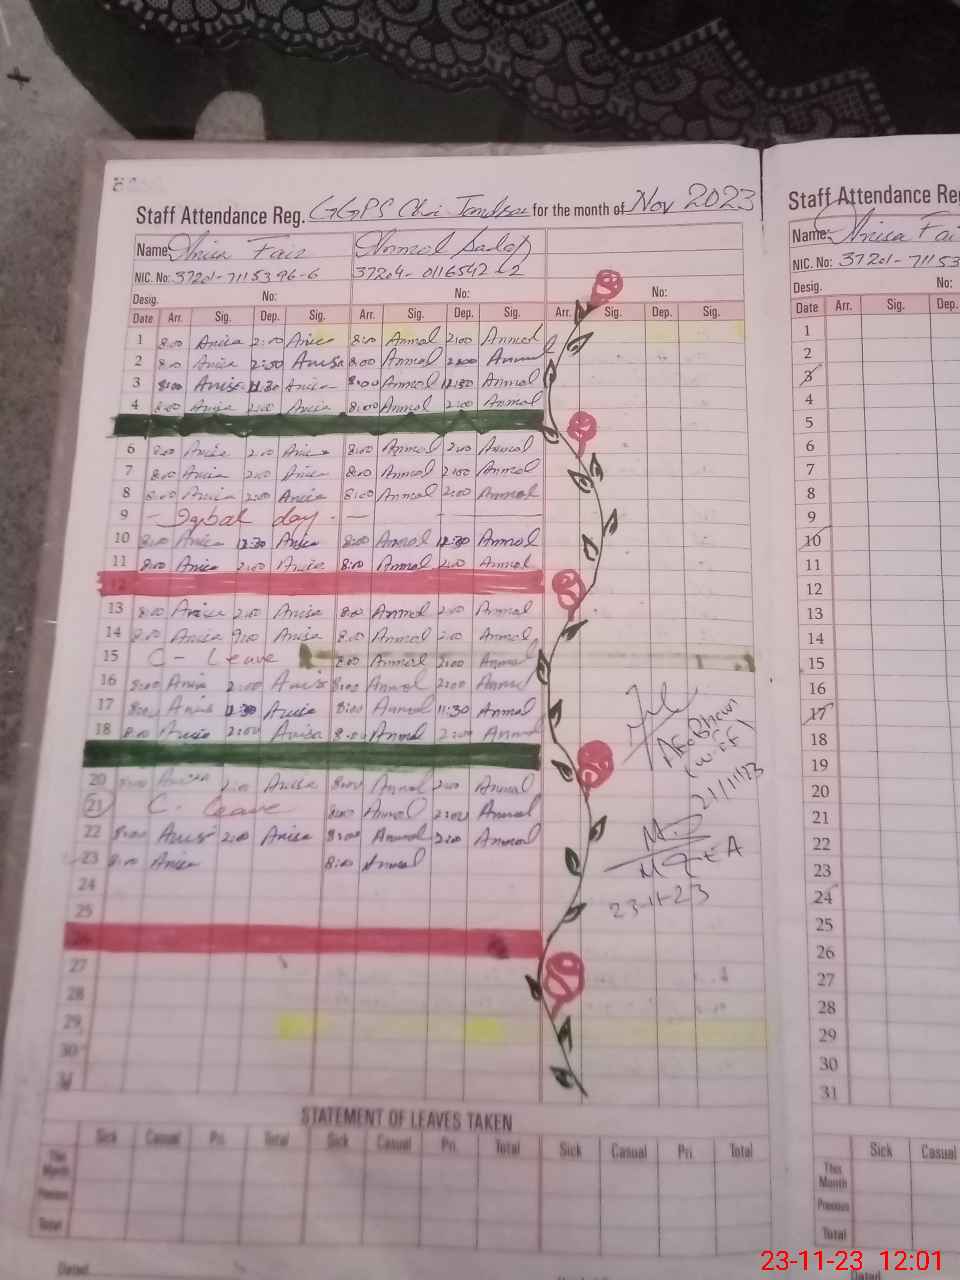 Staff Attendance Reg. GGPS for the month of Nov 2023
Name: Anisa Anmol
NIC. No: 37201-7115396-6 37204-0116542-2
Desig. No: No: No:
Date Arr. Sig. Dep. Sig. Arr. Sig. Dep. Sig. Arr. Sig. Dep. Sig.
1 8:00 Anisa 2:00 Anisa 8:00 Anmol 2:00 Anmol
2 8:00 Anisa 2:00 Anisa 8:00 Anmol 2:00 Anmol
3 8:00 Anisa 12:30 Anisa 8:00 Anmol 12:30 Anmol
4 8:00 Anisa 2:00 Anisa 8:00 Anmol 2:00 Anmol
6 8:00 Anisa 2:00 Anisa 8:00 Anmol 2:00 Anmol
7 8:00 Anisa 2:00 Anisa 8:00 Anmol 2:00 Anmol
8 8:00 Anisa 2:00 Anisa 8:00 Anmol 2:00 Anmol
9 - Iqbal day. -
10 8:00 Anisa 12:30 Anisa 8:00 Anmol 12:30 Anmol
11 8:00 Anisa 2:00 Anisa 8:00 Anmol 2:00 Anmol
12
13 8:00 Anisa 2:00 Anisa 8:00 Anmol 2:00 Anmol
14 8:00 Anisa Anisa 8:00 Anmol 2:00 Anmol
15 C - Leave 8:00 Anmol 2:00 Anmol
16 8:00 Anisa 2:00 Anisa 8:00 Anmol 2:00 Anmol
17 8:00 Anisa Anisa 8:00 Anmol 11:30 Anmol
18 8:00 Anisa 2:00 Anisa 8:00 Anmol 2:00 Anmol
20 8:00 Anisa 2:00 Anisa 8:00 Anmol 2:00 Anmol
21 C - Leave 8:00 Anmol 2:00 Anmol
22 8:00 Anisa 2:00 Anisa 8:00 Anmol 2:00 Anmol
23 8:00 Anisa 8:00 Anmol
24
25
27
28
29
30
31
21/11/23
MEA
23-11-23
STATEMENT OF LEAVES TAKEN
Sick Casual Pri. Total Sick Casual Pri. Total Sick Casual Pri. Total
This Month
Previous
Total
Dated
Staff Attendance Reg
Name: Anisa
NIC. No: 37201-7115
Desig. No:
Date Arr. Sig. Dep.
1
2
3
4
5
6
7
8
9
10
11
12
13
14
15
16
17
18
19
20
21
22
23
24
25
26
27
28
29
30
31
Sick Casual
This Month
Previous
Total
Dated
23-11-23 12:01